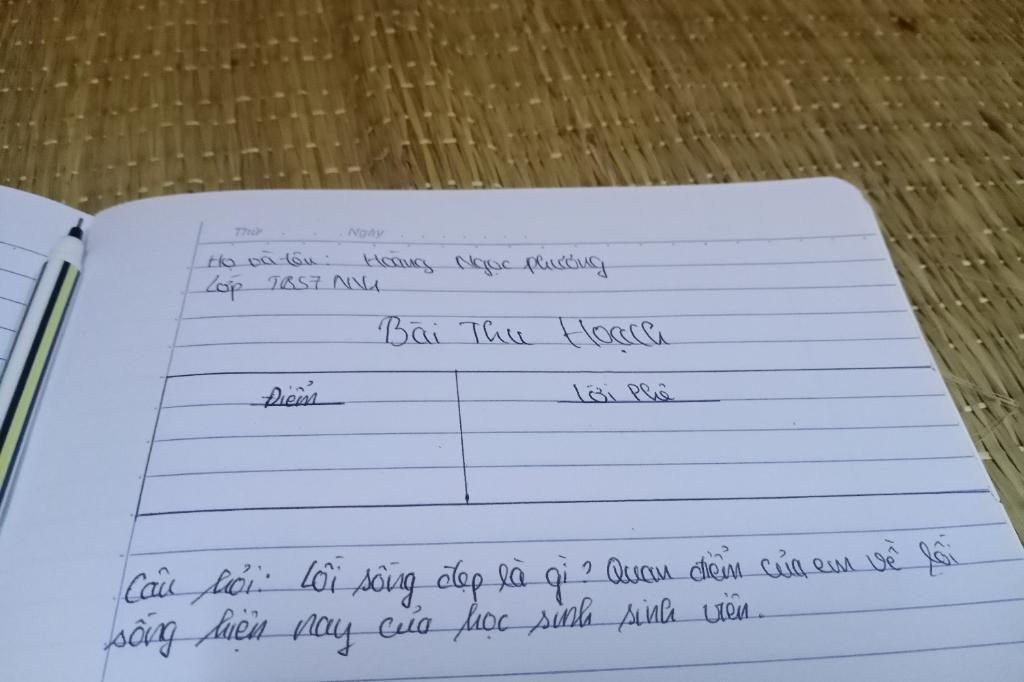 Thứ Ngày
Họ và tên: Hoàng Ngọc Phương
Lớp TBS7 NV1
Bài Thu Hoạch
Điểm Lời Phê
Câu hỏi: Lối sống đẹp là gì? Quan điểm của em về lối
sống hiện nay của học sinh sinh viên.